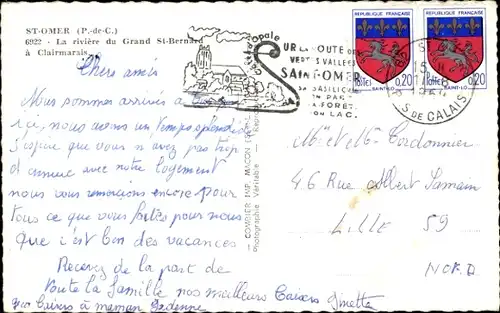 ST-OMER (P.-de-C.)
6922 - La rivière du Grand St-Bernard
à Clairmarais.
Chers amis
Nous sommes arrivés à
ici, nous avons un temps splendide
j'espère que vous n'avez pas trop
d'ennuis avec notre logement
nous vous remercions encore pour
tous ce que vous faites pour nous
que c'est bon des vacances
Recevez de la part de
toute la famille nos meilleurs baisers Ginette
gros baisers à maman
COMBIER IMP. MACON
Photographie Véritable
Côte d'Opale
SUR LA ROUTE DE
VERTES VALLÉES
SAINT-OMER
SA BASILIQUE
SON PARC
SA FORÊT
SON LAC.
PAS DE CALAIS
REPUBLIQUE FRANÇAISE
Postes 0,20
SAINT-LO
REPUBLIQUE FRANÇAISE
Postes 0,20
SAINT-LO
Mr et Me Cordonnier
46 Rue Albert Samain
LILLE 59
NORD